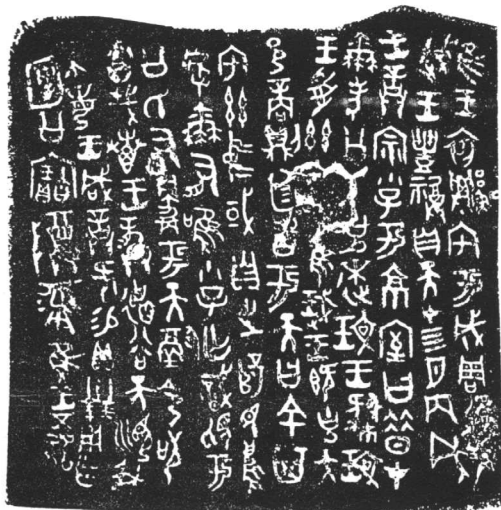 隹王初鄹宅于成周復爯
珷王豊祼自天才四月丙戌
王誥宗小子于京室曰昔才
爾考公氏克逨玟王肆玟
王受兹隹珷王既克大
邑商則廷告于天曰余其
宅兹中或自之乂民烏
虖爾有唯小子亡識視于
公氏有爵于天徹令敬
享哉叀王龏德谷天順我
不每王咸誥何易貝卅朋用乍
公寶尊彝隹王五祀